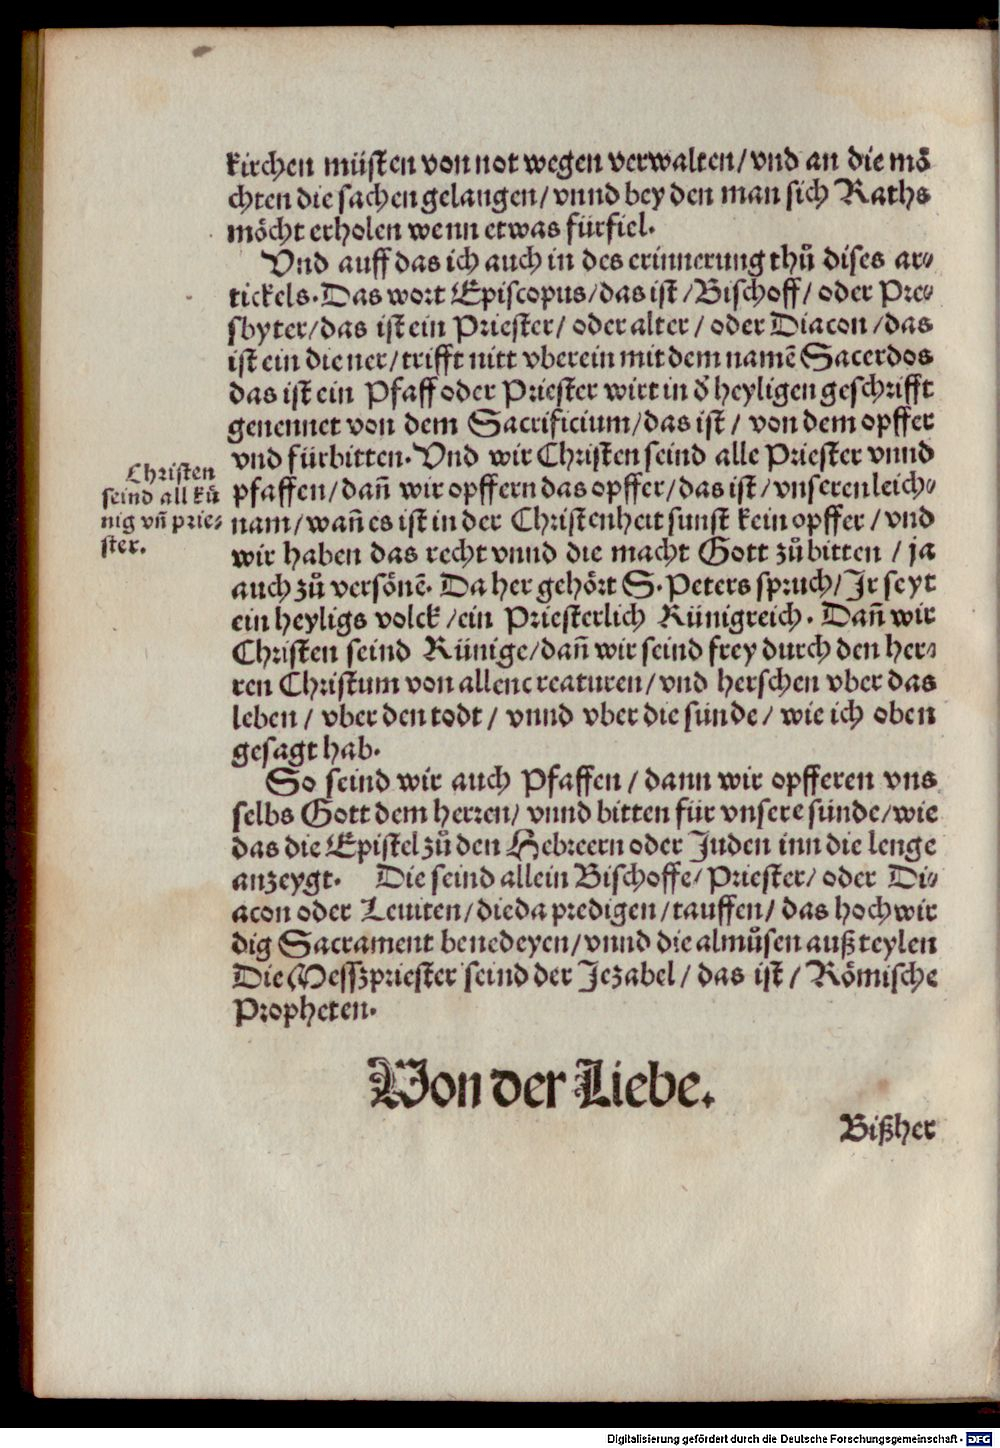 kirchen müsten von not wegen verwalten/ vnd an die mö
chten die sachen gelangen/ vnnd bey den man sich Raths
möcht erholen wenn etwas fürfiel.
Vnd auff das ich auch in des erinnerung thů dises ar⸗
tickels. Das wort Episcopus/ das ist/ Bischoff/ oder Pre⸗
sbyter/ das ist ein Priester/ oder alter/ oder Diacon/ das
ist ein diener/ trifft nitt vberein mit dem namē Sacerdos
das ist ein Pfaff oder Priester wirt in d̄ heyligen geschrifft
genennet von dem Sacrificium/ das ist/ von dem opffer
vnd fürbitten. Vnd wir Christen seind alle Priester vnnd
Christen
seind all kü
nig vn̄ prie⸗
ster.
pfaffen/ dan̄ wir opffern das opffer/ das ist/ vnseren leich⸗
nam/ wan̄ es ist in der Christenheit sunst kein opffer/ vnd
wir haben das recht vnnd die macht Gott zů bitten/ ja
auch zů versönē. Da her gehört S. Peters spruch/ Ir seyt
ein heyligs volck/ ein Priesterlich Künigreich. Dan̄ wir
Christen seind Künige/ dan̄ wir seind frey durch den her⸗
ren Christum von allen creaturen/ vnd herschen vber das
leben/ vber den todt/ vnnd vber die sünde/ wie ich oben
gesagt hab.
So seind wir auch Pfaffen/ dann wir opfferen vns
selbs Gott dem herren/ vnnd bitten für vnsere sünde/ wie
das die Epistel zů den Hebreern oder Juden inn die lenge
anzeygt. Die seind allein Bischoffe/ Priester/ oder Di⸗
acon oder Leuiten/ die da predigen/ tauffen/ das hochwir
dig Sacrament benedeyen/ vnnd die almůsen auß teylen
Die Messzpriester seind der Jezabel/ das ist/ Römische
Propheten.
Von der Liebe.
Bißher
Digitalisierung gefördert durch die Deutsche Forschungsgemeinschaft - DFG